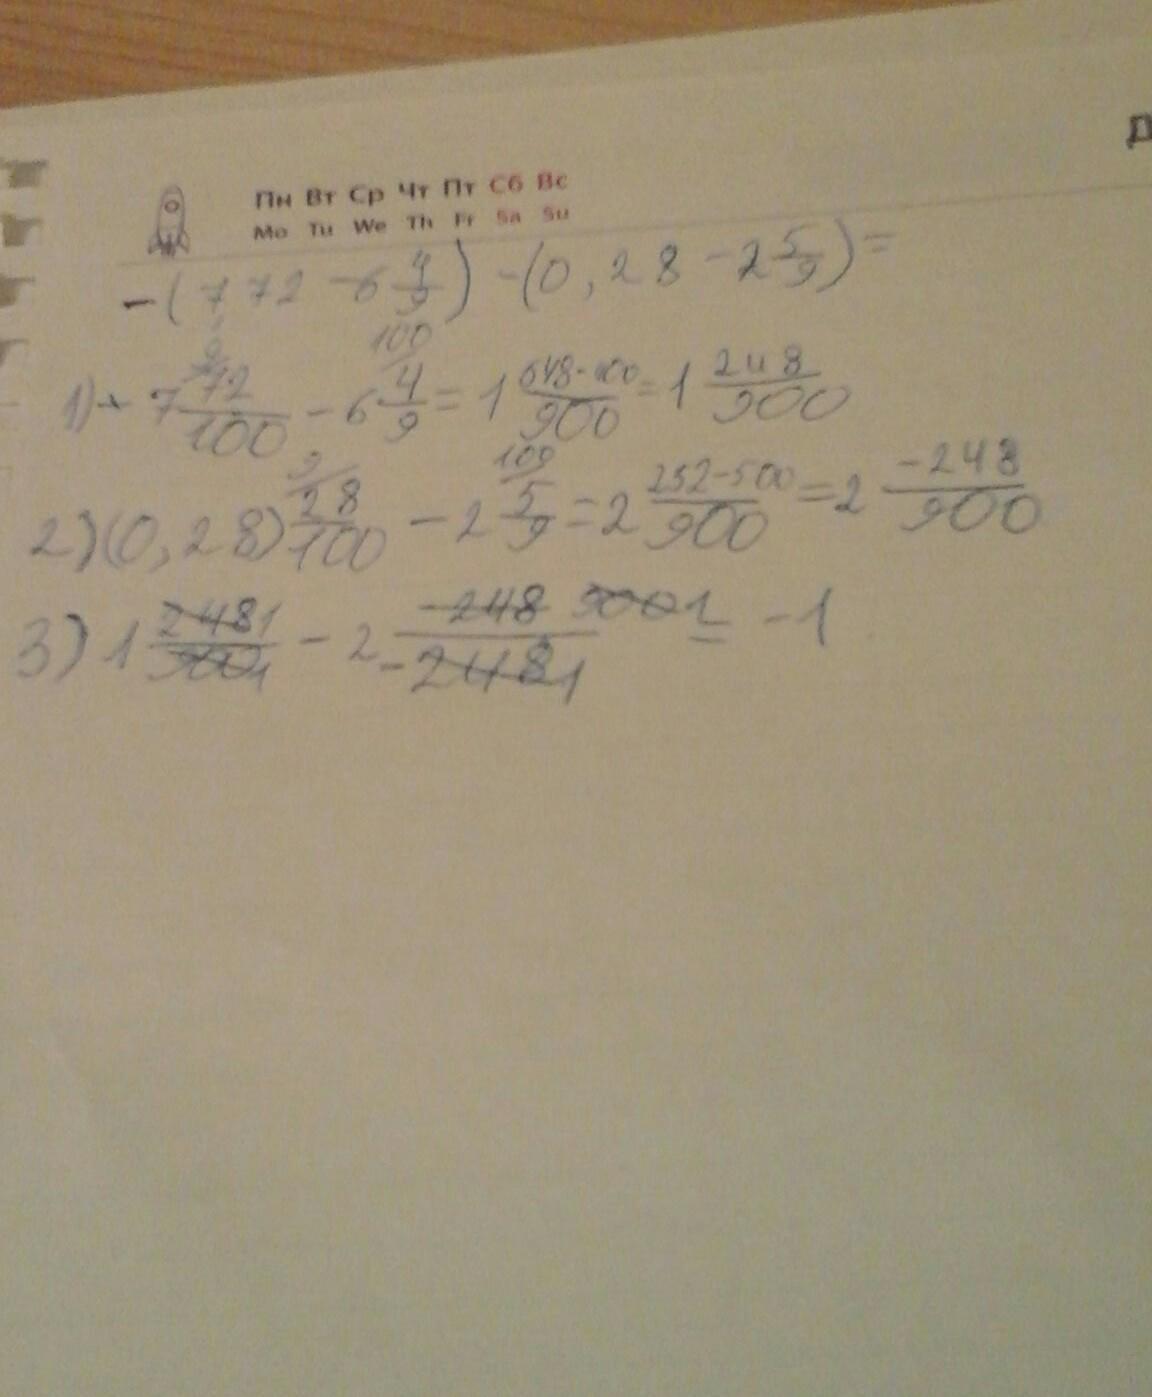 Д
Пн Вт Ср Чт Пт Сб Вс
Mo Tu We Th Fr Sa Su
-(7 72 - 6 4/9) - (0,28 - 2 5/9) =
1) - 7 72/100 - 6 4/9 = 1 648-400/900 = 1 248/900
2) (0,28) 28/100 - 2 5/9 = 2 252-500/900 = 2 -248/900
3) 1 248 1/900 1 - 2 -248 900 1/-248 1 = -1